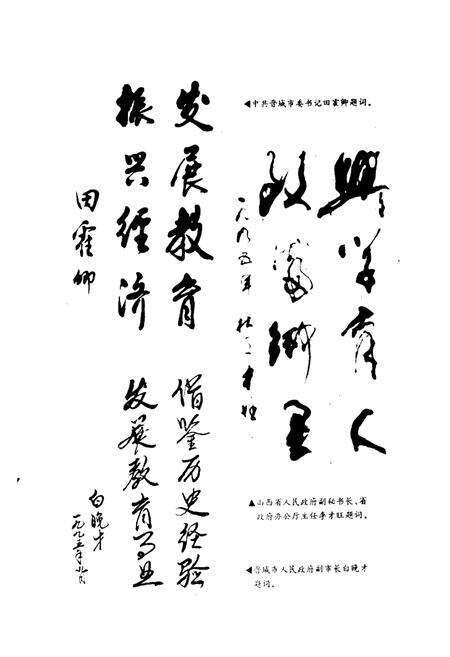 发展教育
振兴经济
田霍卿
◀中共晋城市委书记田霍卿题词。
興学育人
致富乡里
一九九五年 李才旺
▲山西省人民政府副秘书长、省
政府办公厅主任李才旺题词。
借鉴历史经验
发展教育事业
白晚才
一九九五年九月
◀晋城市人民政府副市长白晚才
题词。